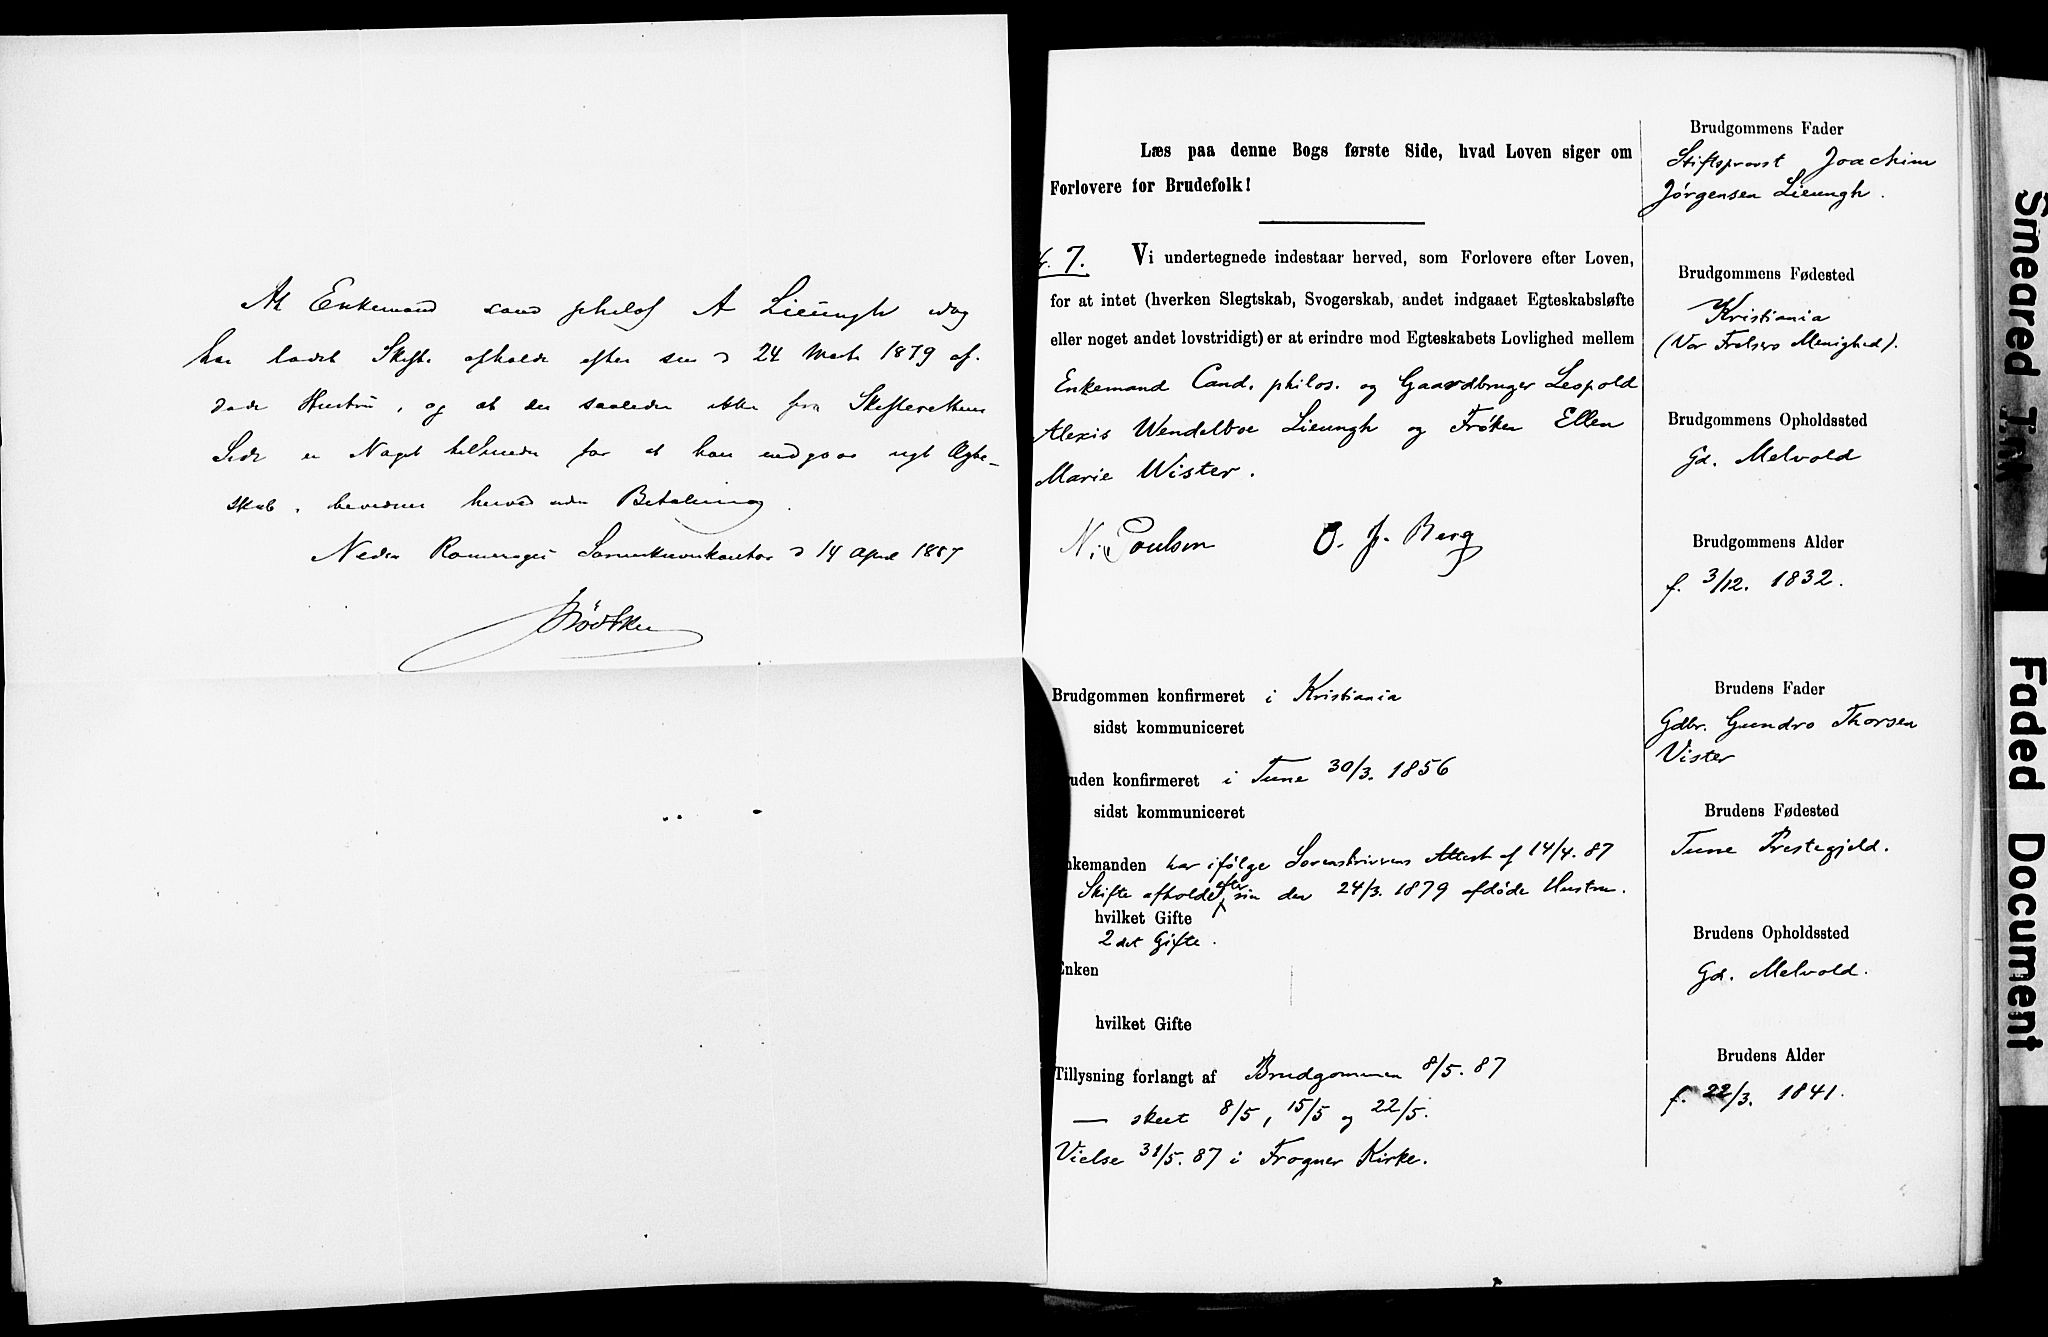 At Enkemand cand philos A Lieungh idag
har ladet Skifte afholde efter sin d 24 Marts 1879 af-
døde Hustru, og at der saaledes ikke fra Skifterettens
Side er Noget tilhinder for at han indgaar nyt Ægte-
skab, bevidnes herved uden Betaling.
Nedre Romeriges Sorenskriverkontor d 14 April 1887
Bödtker
Læs paa denne Bogs første Side, hvad Loven siger om
Forlovere for Brudefolk!
7. Vi undertegnede indestaar herved, som Forlovere efter Loven,
for at intet (hverken Slegtskab, Svogerskab, andet indgaaet Egteskabsløfte
eller noget andet lovstridigt) er at erindre mod Egteskabets Lovlighed mellem
Enkemand Cand. philos. og Gaardbruger Leopold
Alexis Wendelboe Lieungh og Frøken Ellen
Marie Wister.
N. Poulsen O. J. Berg
Brudgommen konfirmeret i Kristiania
sidst kommuniceret
uden konfirmeret i Tune 30/3. 1856
sidst kommuniceret
nkemanden har ifølge Sorenskriverens Attest af 14/4. 87
Skifte afholdt efter sin den 24/3. 1879 afdøde Hustru.
hvilket Gifte
2det Gifte.
Enken
hvilket Gifte
Tillysning forlangt af Brudgommen 8/5. 87
— skeet 8/5, 15/5 og 22/5.
Vielse 31/5. 87 i Frogner Kirke.
Brudgommens Fader
Stiftsprovst Joachim
Jørgensen Lieungh.
Brudgommens Fødested
Kristiania
(Vor Frelsers Menighed).
Brudgommens Opholdssted
Gd. Melvold
Brudgommens Alder
f. 3/12. 1832.
Brudens Fader
Gdbr. Gundro Thorsen
Vister
Brudens Fødested
Tune Prestegjeld.
Brudens Opholdssted
Gd. Melvold.
Brudens Alder
f. 22/3. 1841.
Smeared Ink
Faded Document